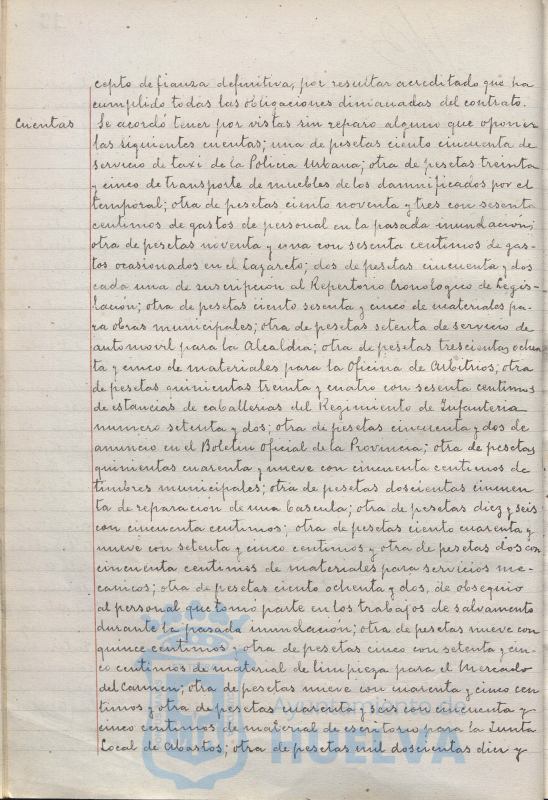 cepto de fianza definitiva, por resultar acreditado que ha
cumplido todas las obligaciones dimanadas del contrato.
Cuentas
Se acordó tener por vistas sin reparo alguno que oponer
las siguientes cuentas; una de pesetas ciento cincuenta de
servicio de taxi de la Policia Urbana; otra de pesetas treinta
y cinco de transporte de muebles de los damnificados por el
temporal; otra de pesetas ciento noventa y tres con sesenta
centimos de gastos de personal en la pasada inundación;
otra de pesetas noventa y una con sesenta centimos de gas-
tos ocasionados en el Lazareto; dos de pesetas cincuenta y dos
cada una de suscripción al Repertorio Cronologico de Legis-
lación; otra de pesetas ciento sesenta y cinco de materiales pa-
ra obras municipales; otra de pesetas setenta de servicio de
automovil para la Alcaldia; otra de pesetas trescientas ochen
ta y cinco de materiales para la Oficina de Arbitrios; otra
de pesetas quinientas treinta y cuatro con sesenta centimos
de estancias de caballerias del Regimiento de Infanteria
numero setenta y dos; otra de pesetas cincuenta y dos de
anuncio en el Boletin Oficial de la Provincia; otra de pesetas
quinientas cuarenta y nueve con cincuenta centimos de
timbres municipales; otra de pesetas doscientas cincuen-
ta de reparacion de una bascula; otra de pesetas diez y seis
con cincuenta centimos; otra de pesetas ciento cuarenta y
nueve con setenta y cinco centimos y otra de pesetas dos con
cincuenta centimos de materiales para servicios me-
canicos; otra de pesetas ciento ochenta y dos, de obsequio
al personal que tomo parte en los trabajos de salvamento
durante la pasada inundación; otra de pesetas nueve con
quince centimos y otra de pesetas cinco con setenta y cin-
co centimos de material de limpieza para el Mercado
del Carmen; otra de pesetas nueve con cuarenta y cinco cen
timos y otra de pesetas cuarenta y seis con cincuenta y
cinco centimos de material de escritorio para la Junta
Local de Abastos; otra de pesetas mil doscientas diez y
Ayuntamiento de
HUELVA